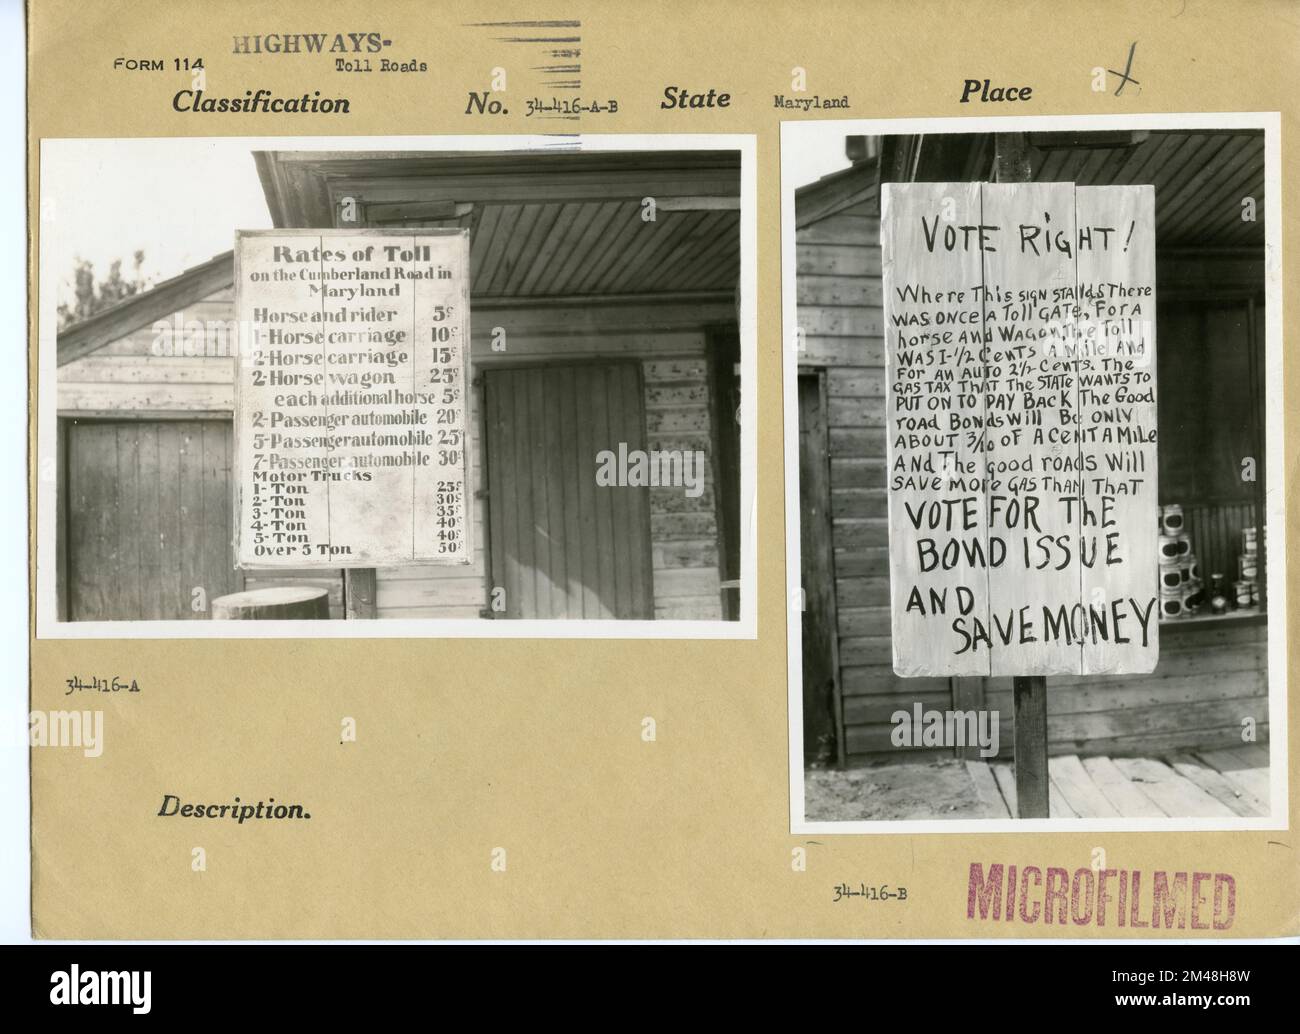 HIGHWAYS-
FORM 114
Toll Roads
Classification No. 34-416-A-B State Maryland Place
Rates of Toll
on the Cumberland Road in
Maryland
Horse and rider 5¢
1-Horse carriage 10¢
2-Horse carriage 15¢
2-Horse wagon 25¢
each additional horse 5¢
2-Passenger automobile 20¢
5-Passenger automobile 25¢
7-Passenger automobile 30¢
Motor Trucks
1-Ton 25¢
2-Ton 30¢
3-Ton 35¢
4-Ton 40¢
5-Ton 40¢
Over 5 Ton 50¢
34-416-A
Description.
VOTE RIGHT!
Where This SIGN STANDS There
WAS ONCE A Toll GATE, FOR A
horse AND WAGON. The Toll
WAS 1-1/2 CENTS A Mile AND
FOR AN AUTO 2 1/2 CENTS. The
GAS TAX THAT The STATE WANTS TO
PUT ON TO PAY BACK The Good
road Bonds Will Be ONLY
ABOUT 3/10 OF A CENT A Mile
AND The good roADS Will
SAVE MORE GAS THAN THAT
VOTE FOR The
BOND ISSUE
AND
SAVE MONEY
34-416-B
MICROFILMED
alamy
alamy
Image ID: 2M48H8W
www.alamy.com